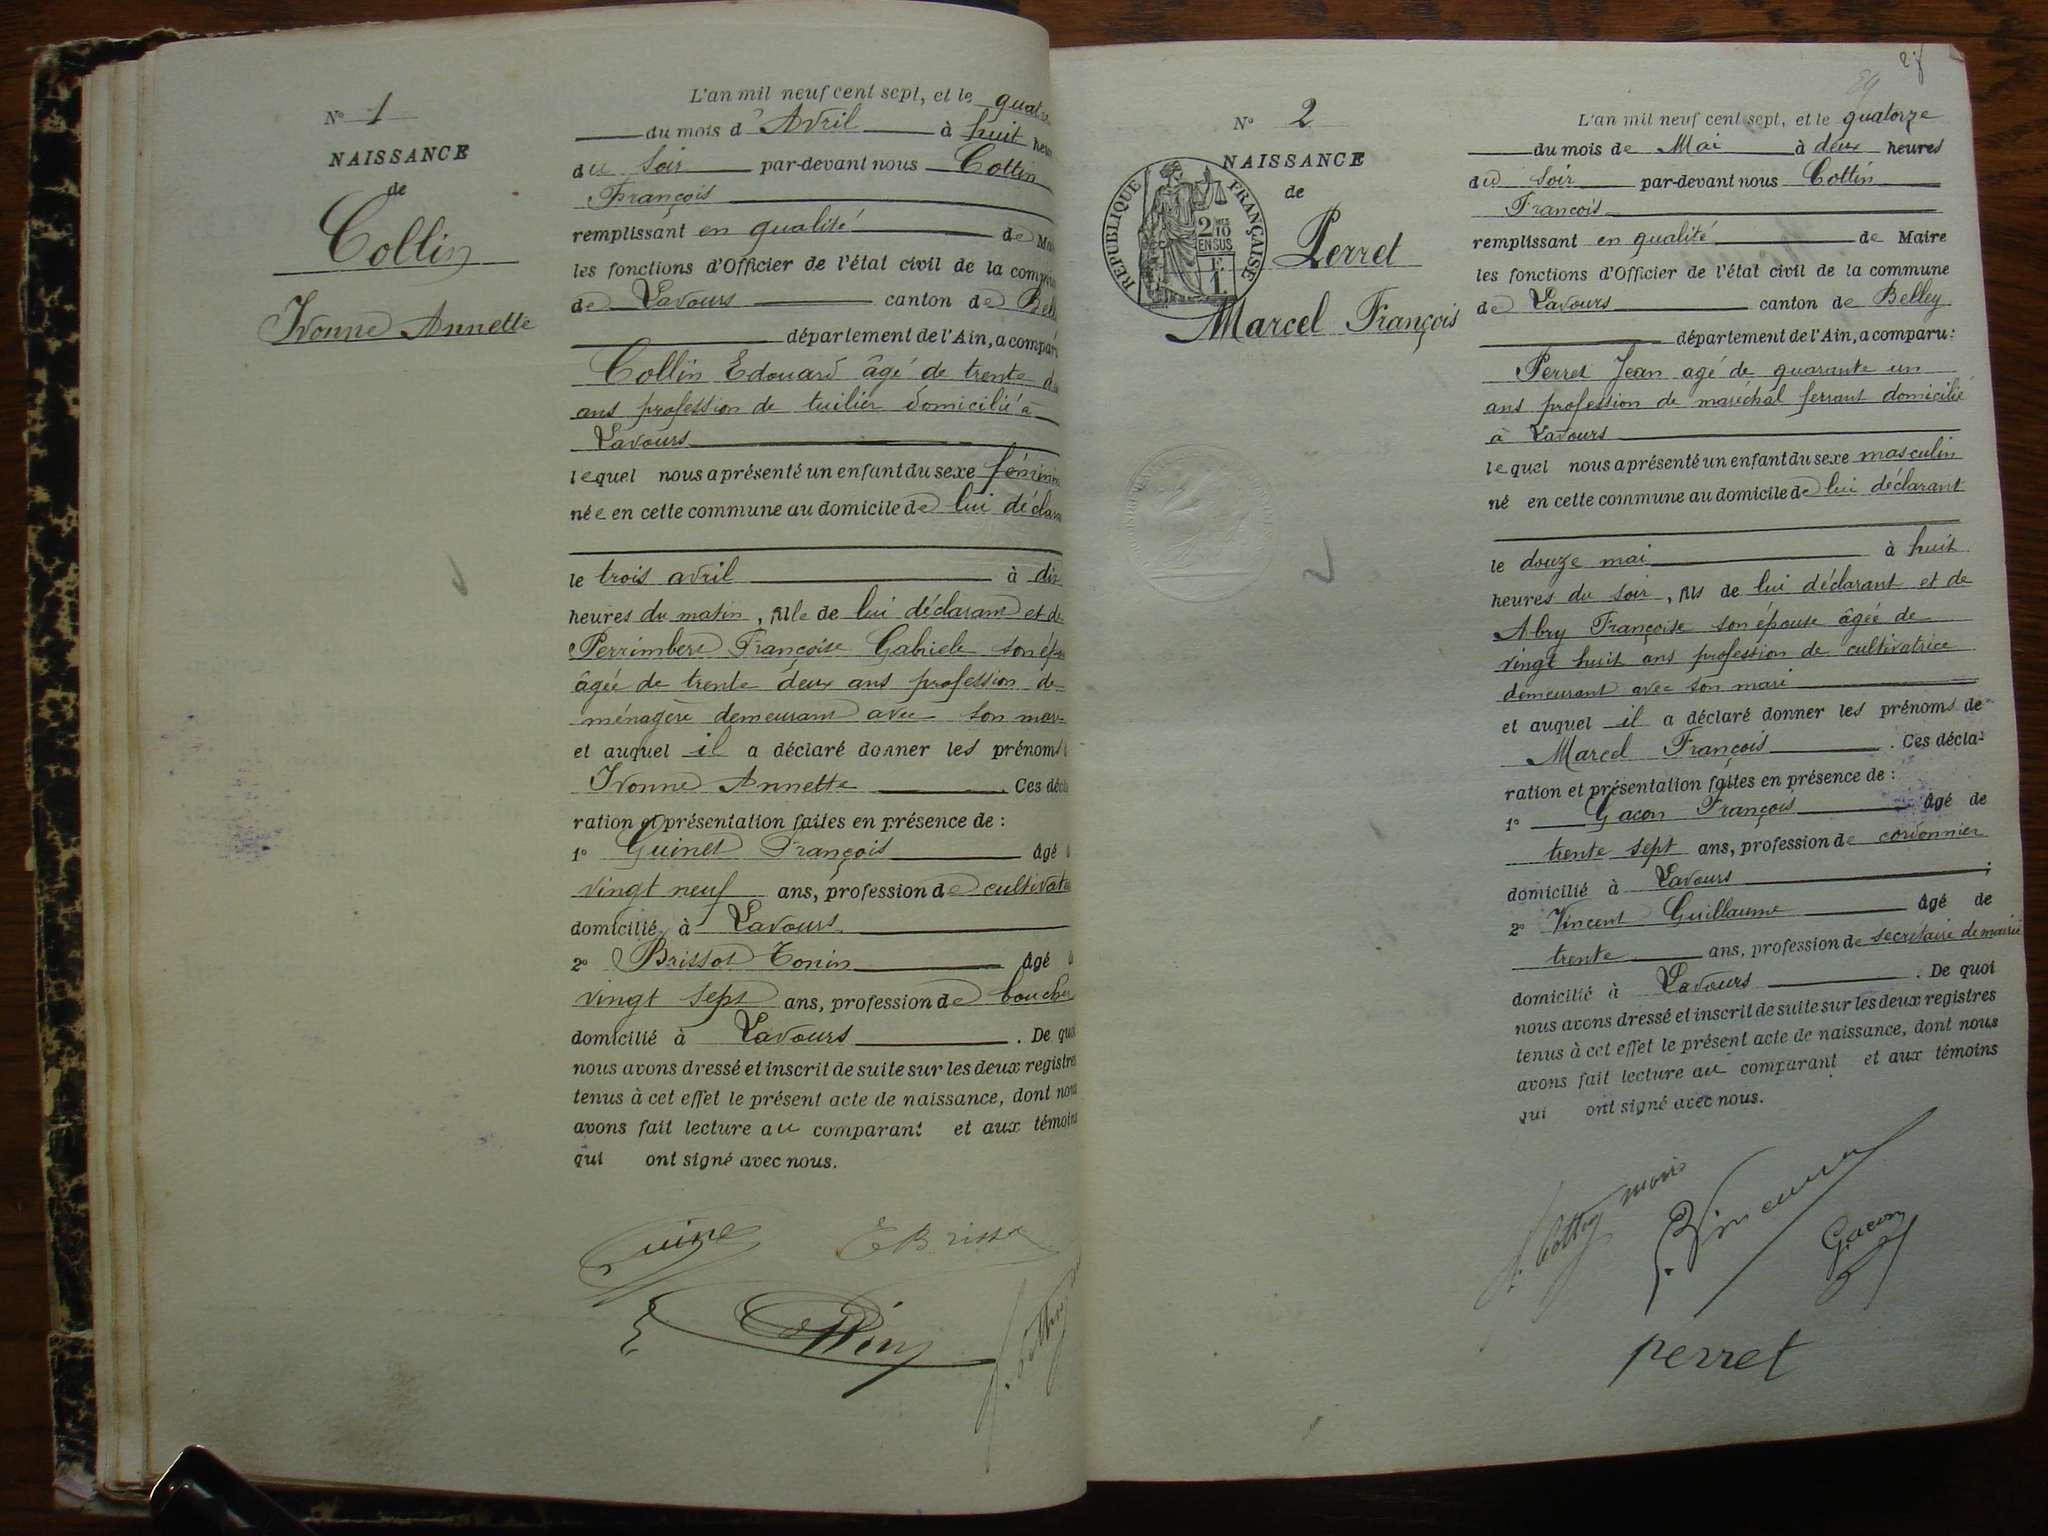 N° 1
NAISSANCE
de
Collin
Ivonne Annette
L'an mil neuf cent sept, et le quatre
du mois d'Avril à huit heu
du soir par-devant nous Cottin
François
remplissant en qualité de Mai
les fonctions d'Officier de l'état civil de la commun
de Lavours canton de Bell
département de l'Ain, a comparu
Collin Edouard âgé de trente
ans profession de tuilier domicilié à
Lavours
lequel nous a présenté un enfant du sexe féminin
née en cette commune au domicile de lui déclara
le trois avril à dix
heures du matin, fille de lui déclarant et de
Françoise Gabriele son ép
âgée de trente deux ans profession de
ménagère demeurant avec son mari
et auquel il a déclaré donner les prénoms
Ivonne Annette. Ces décla
ration et présentation faites en présence de :
1° Guinet François âgé d
vingt neuf ans, profession de cultivate
domicilié à Lavours
2° Brissot Tonin âgé d
vingt sept ans, profession de boucher
domicilié à Lavours. De quoi
nous avons dressé et inscrit de suite sur les deux registres
tenus à cet effet le présent acte de naissance, dont nous
avons fait lecture au comparant et aux témoins
qui ont signé avec nous.
28
29
N° 2
NAISSANCE
de
Perret
Marcel François
REPUBLIQUE FRANÇAISE
2/10 EN SUS
L'an mil neuf cent sept, et le quatorze
du mois de Mai à deux heures
du soir par-devant nous Cottin
François
remplissant en qualité de Maire
les fonctions d'Officier de l'état civil de la commune
de Lavours canton de Belley
département de l'Ain, a comparu :
Perret Jean agé de quarante un
ans profession de maréchal ferrant domicilié
à Lavours
lequel nous a présenté un enfant du sexe masculin
né en cette commune au domicile de lui déclarant
le douze mai à huit
heures du soir, fils de lui déclarant et de
Abry Françoise son épouse âgée de
vingt huit ans profession de cultivatrice
demeurant avec son mari
et auquel il a déclaré donner les prénoms de
Marcel François. Ces décla-
ration et présentation faites en présence de :
1° Gacon François âgé de
trente sept ans, profession de cordonnier
domicilié à Lavours ;
2° Vincent Guillaume âgé de
trente ans, profession de secrétaire de mairie
domicilié à Lavours. De quoi
nous avons dressé et inscrit de suite sur les deux registres
tenus à cet effet le présent acte de naissance, dont nous
avons fait lecture au comparant et aux témoins
qui ont signé avec nous.
Gacon
perret